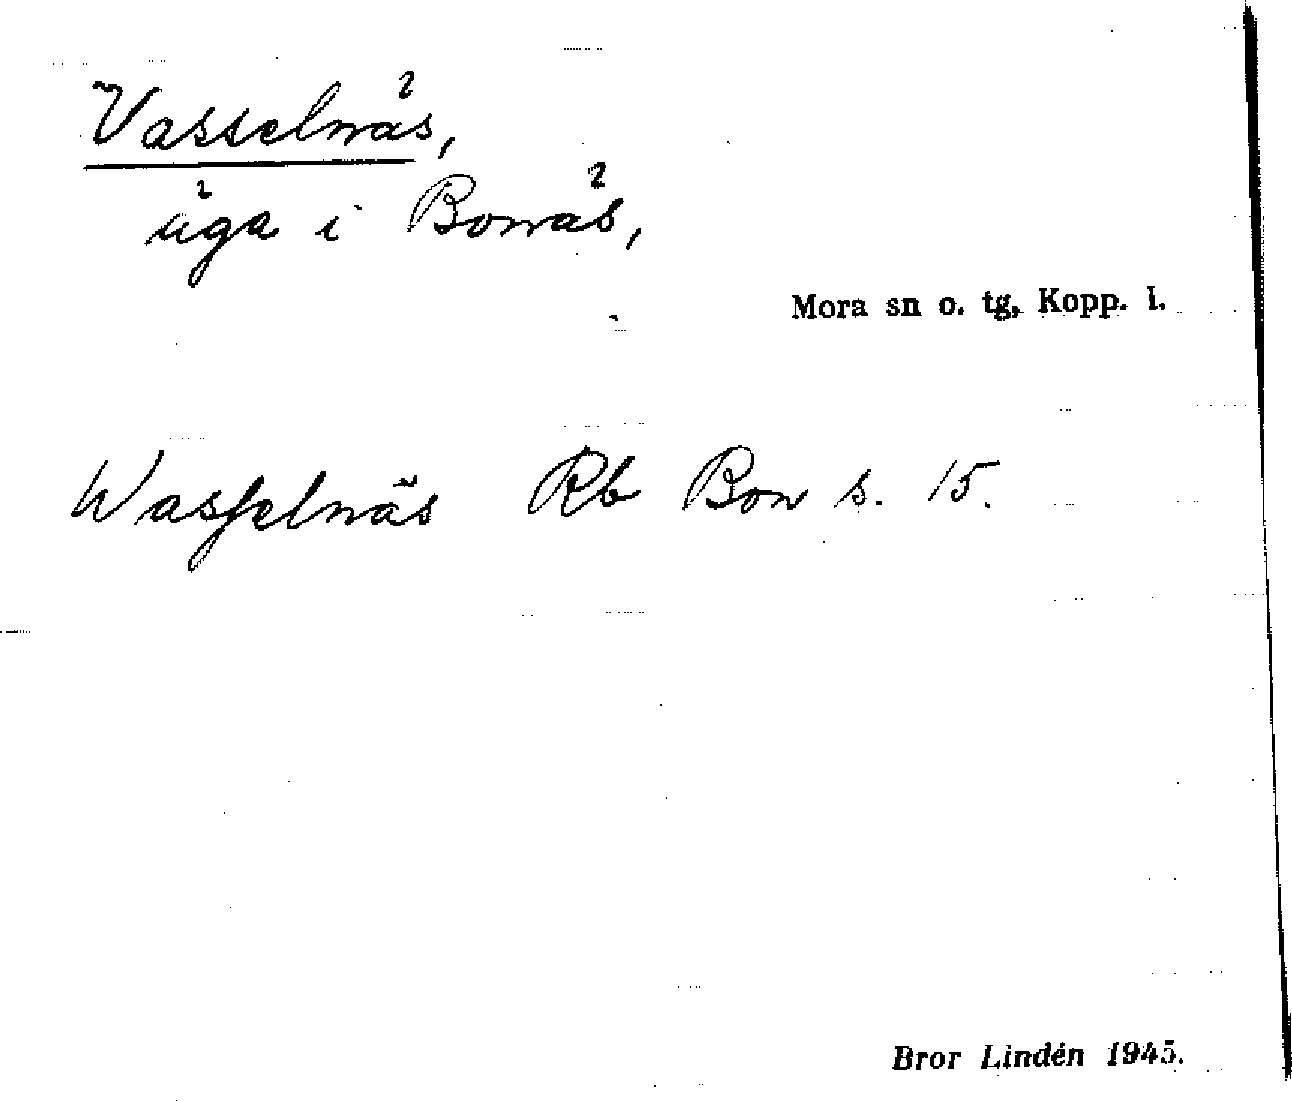 Vasselnäs,
äga i Bonäs,
Mora sn o. tg, Kopp. l.
Wasſelnäs Rb Bon s. 15.
Bror Lindén 1945.